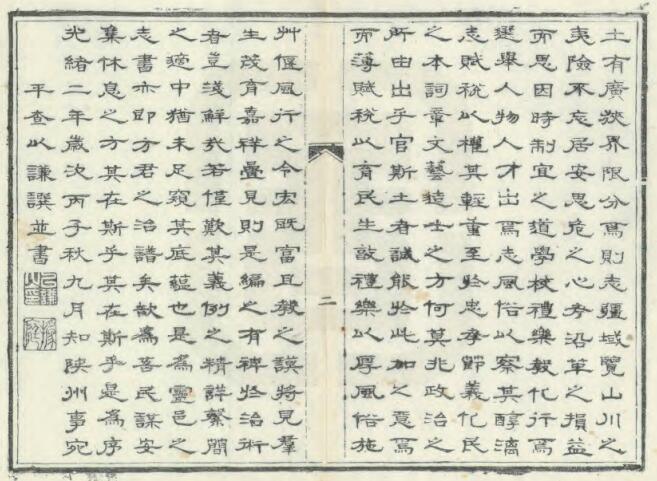 土有廣狹界限分焉則志疆域覽山川之
夷險不忘居安思危之心考沿革之損益
而思因時制宜之道學校禮樂教化行焉
選舉人物人才出焉志風俗以察其醇漓
志賦稅以權其輕重至於忠孝節義化民
之本詞章文藝造士之方何莫非政治之
所由出乎官斯土者誠能於此加之意焉
而薄賦稅以育民生敦禮樂以厚風俗施
二
艸偃風行之令宏既富且教之謨將見羣
生茂育嘉祥疊見則是編之有裨於治術
者豈淺鮮哉若僅歎其義例之精詳繁簡
之適中猶未足窺其底蘊也是為靈邑之
志書亦即方君之治譜矣欲為吾民謀安
集休息之方其在斯乎其在斯乎是為序
光緒二年歲次丙子秋九月知陝州事宛
平查以謙譔並書